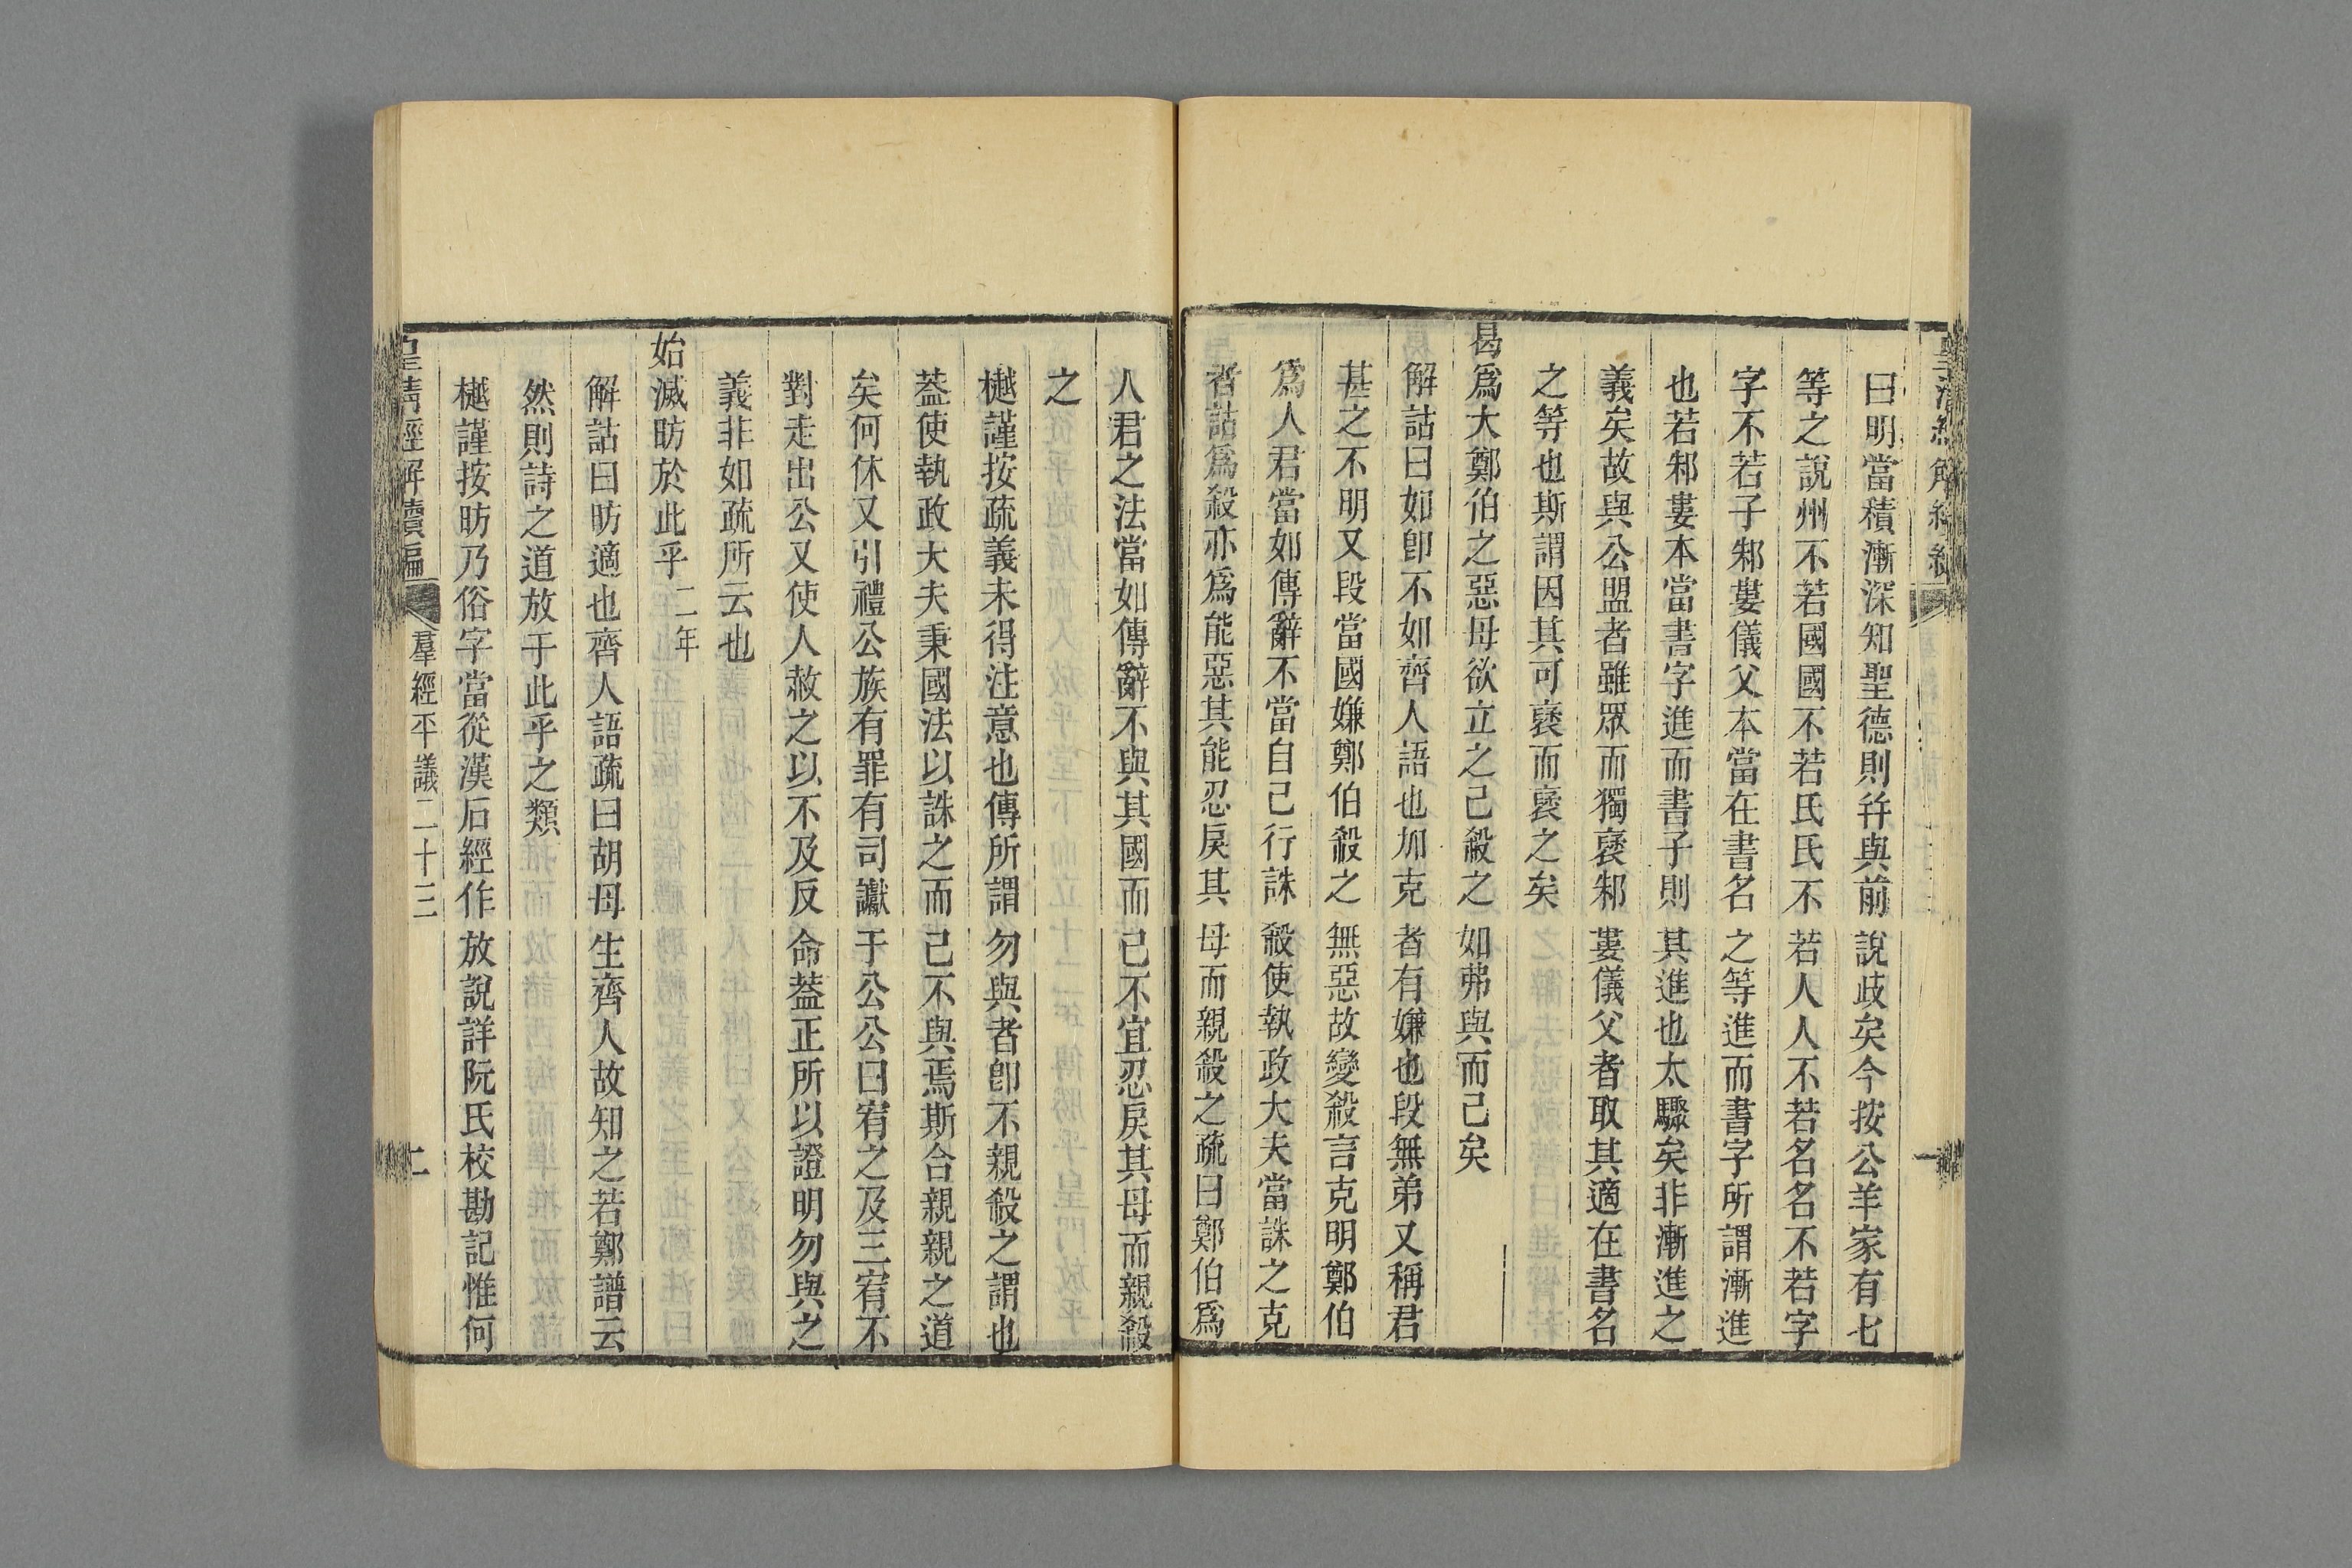 曰明當積漸深知聖德則幷與前說歧矣今按公羊家有七
等之說州不若國國不若氏氏不若人人不若名名不若字
字不若子邾婁儀父本當在書名之等進而書字所謂漸進
也若邾婁本當書字進而書子則其進也太驟矣非漸進之
義矣故與公盟者雖眾而獨襃邾婁儀父者取其適在書名
之等也斯謂因其可襃而襃之矣
曷爲大鄭伯之惡母欲立之己殺之如弗與而己矣
解詁曰如卽不如齊人語也加克者有嫌也段無弟又稱君
甚之不明又段當國嫌鄭伯殺之無惡故變殺言克明鄭伯
爲人君當如傳辭不當自己行誅殺使執政大夫當誅之克
者詁爲殺亦爲能惡其能忍戾其母而親殺之疏曰鄭伯爲
人君之法當如傳辭不與其國而已不宜忍戾其母而親殺
之
樾謹按疏義未得注意也傳所謂勿與者卽不親殺之謂也
葢使執政大夫秉國法以誅之而己不與焉斯合親親之道
矣何休又引禮公族有罪有司讞于公公曰宥之及三宥不
對走出公又使人赦之以不及反命葢正所以證明勿與之
義非如疏所云也
始滅昉於此乎 二年
解詁曰昉適也齊人語疏曰胡母生齊人故知之若鄭譜云
然則詩之道放于此乎之類
樾謹按昉乃俗字當從漢石經作放說詳阮氏校勘記惟何
皇清經解續編 羣經平議二十三 二